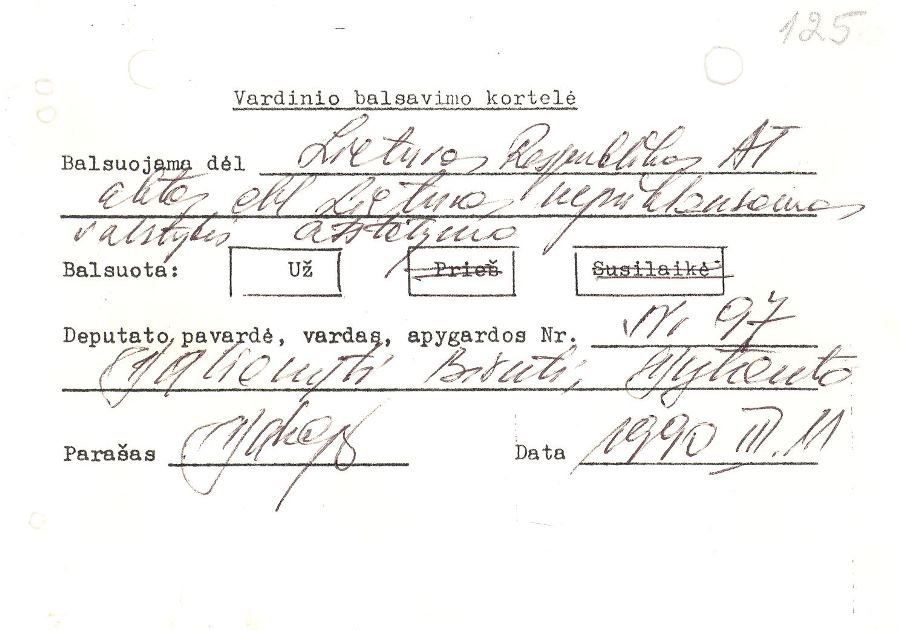 125
Vardinio balsavimo kortelė
Balsuojama dėl Lietuvos Respublikos AT
akto dėl Lietuvos nepriklausomos
valstybės atstatymo
Balsuota: Už Prieš Susilaikė
Deputato pavardė, vardas, apygardos Nr. Nr 97
Valionytė Birutė,
Parašas
Data 1990 III.11